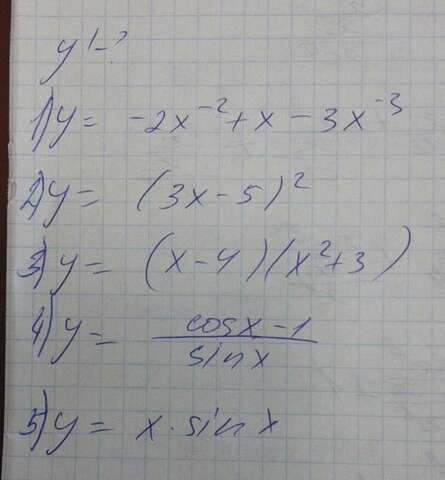 y'-?
1) y = -2x⁻² + x - 3x⁻³
2) y = (3x - 5)²
3) y = (x - 4)(x² + 3)
4) y = (cosx - 1)/(sinx)
5) y = x · sinx